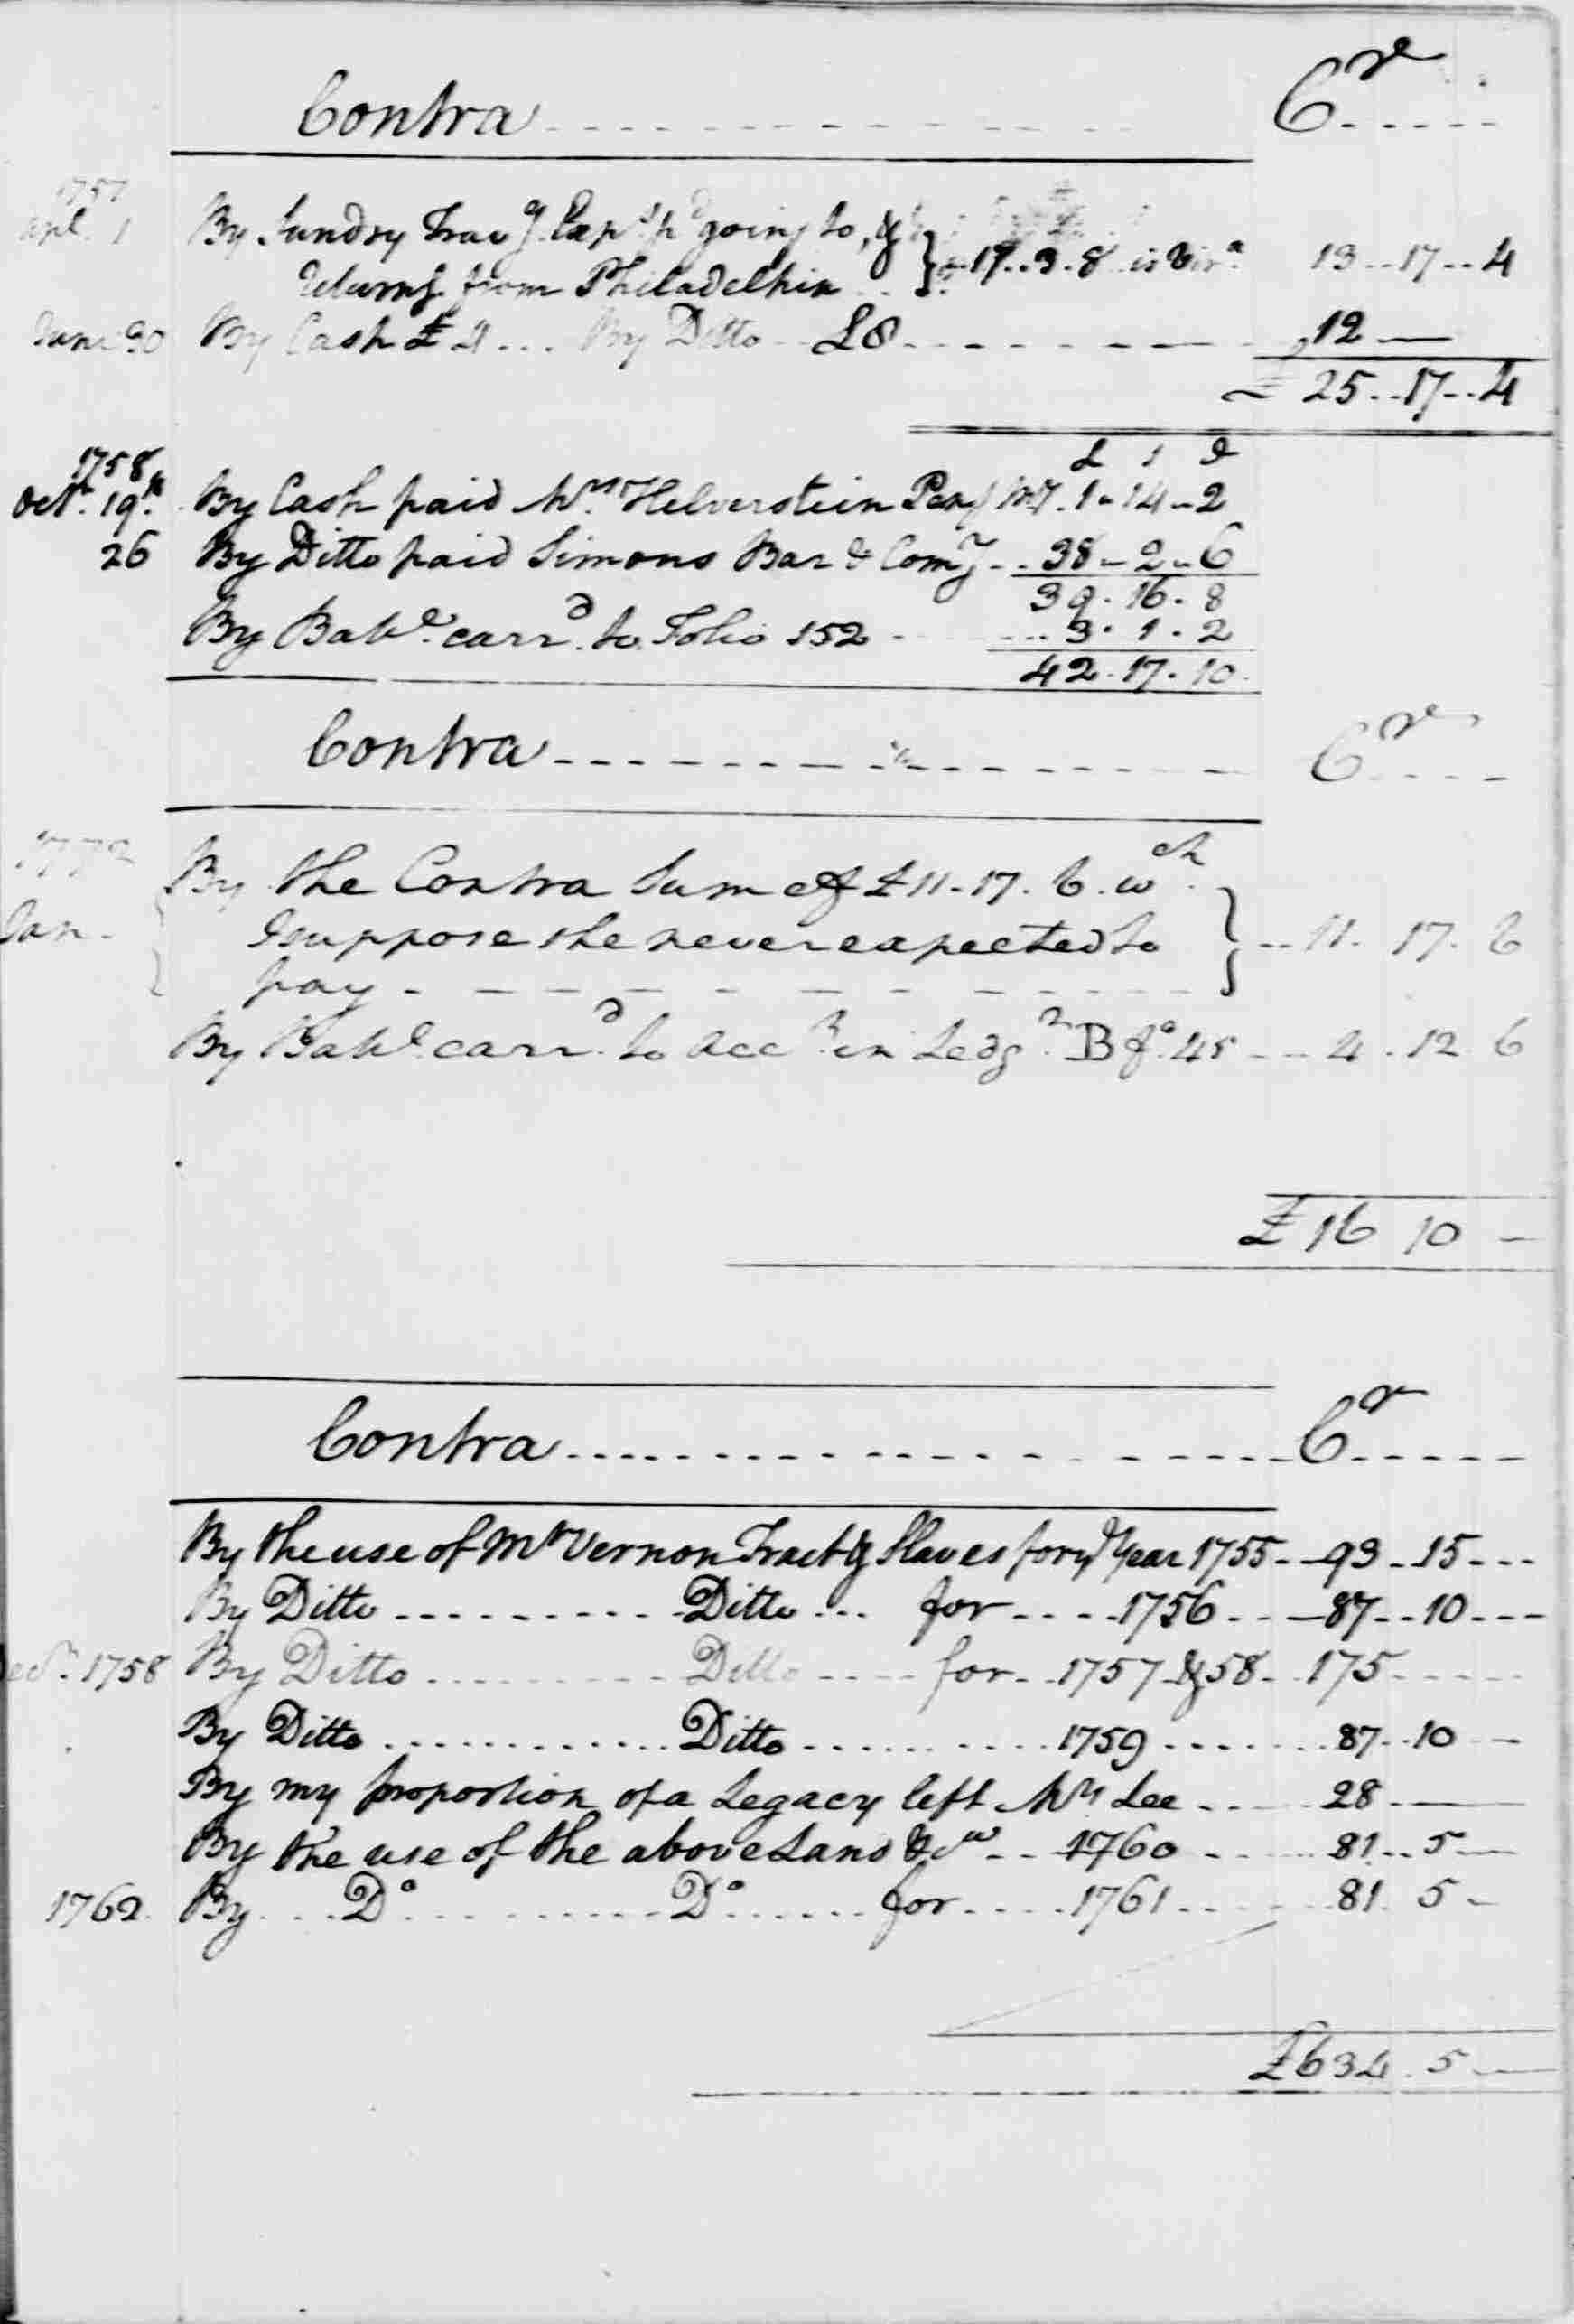 Contra Cr
1757
Apl. 1 By Sundry Travg. Exps. pd going to, &
Returng. from Philadelphia 17..3..8 is Vira. 13..17..4
June 30 By Cash £4... By Ditto £8 12 —
£ 25..17..4
1758 £ s d
Octr. 19th By Cash paid Mrs. Helverstein 1-14-2
26 By Ditto paid Simons Bar & Comy 38-2-6
39.16.8
By Balle. carrd. to Folio 152 3.1.2
42.17.10
Contra Cr
1772
Jan. By the Contra Sum of £11-17.6. wch.
I suppose she never expected to 11. 17. 6
pay
By Balle. carrd. to Acct. in Ledgr. B fo. 45 4.12.6
£16 10 —
Contra Cr
By the use of Mt Vernon Tract & Slaves for ye Year 1755 93..15
By Ditto Ditto for 1756 87..10
Decr. 1758 By Ditto Ditto for 1757 & 58 175
By Ditto Ditto 1759 87..10 —
By my proportion of a Legacy left Mrs Lee 28 —
By the use of the above Land &ca 1760 81..5 —
1762 By Do Do for 1761 81. 5 —
£634. 5 —